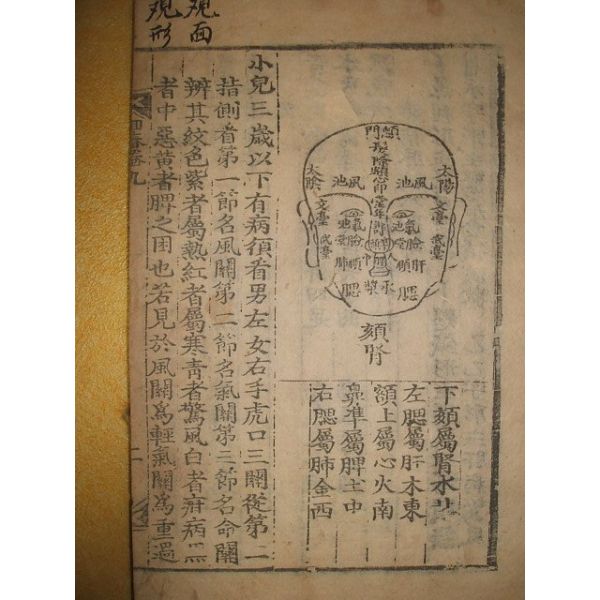 顖門
髮際
太陽
風池
風池
太陰
文臺
武臺
文臺
武臺
臉
肝
臉
肺
腮
腮
承
漿
頦腎
下頦屬腎水北
左腮屬肝木東
額上屬心火南
鼻準屬脾土中
右腮屬肺金西
小兒三歲以下有病須看男左女右手虎口三關從第二
指側看第一節名風關第二節名氣關第三節名命關
辨其紋色紫者屬熱紅者屬寒青者驚風白者疳病黑
者中惡黃者脾之困也若見於風關為輕氣關為重過
回春卷九
二
覌面
覌形